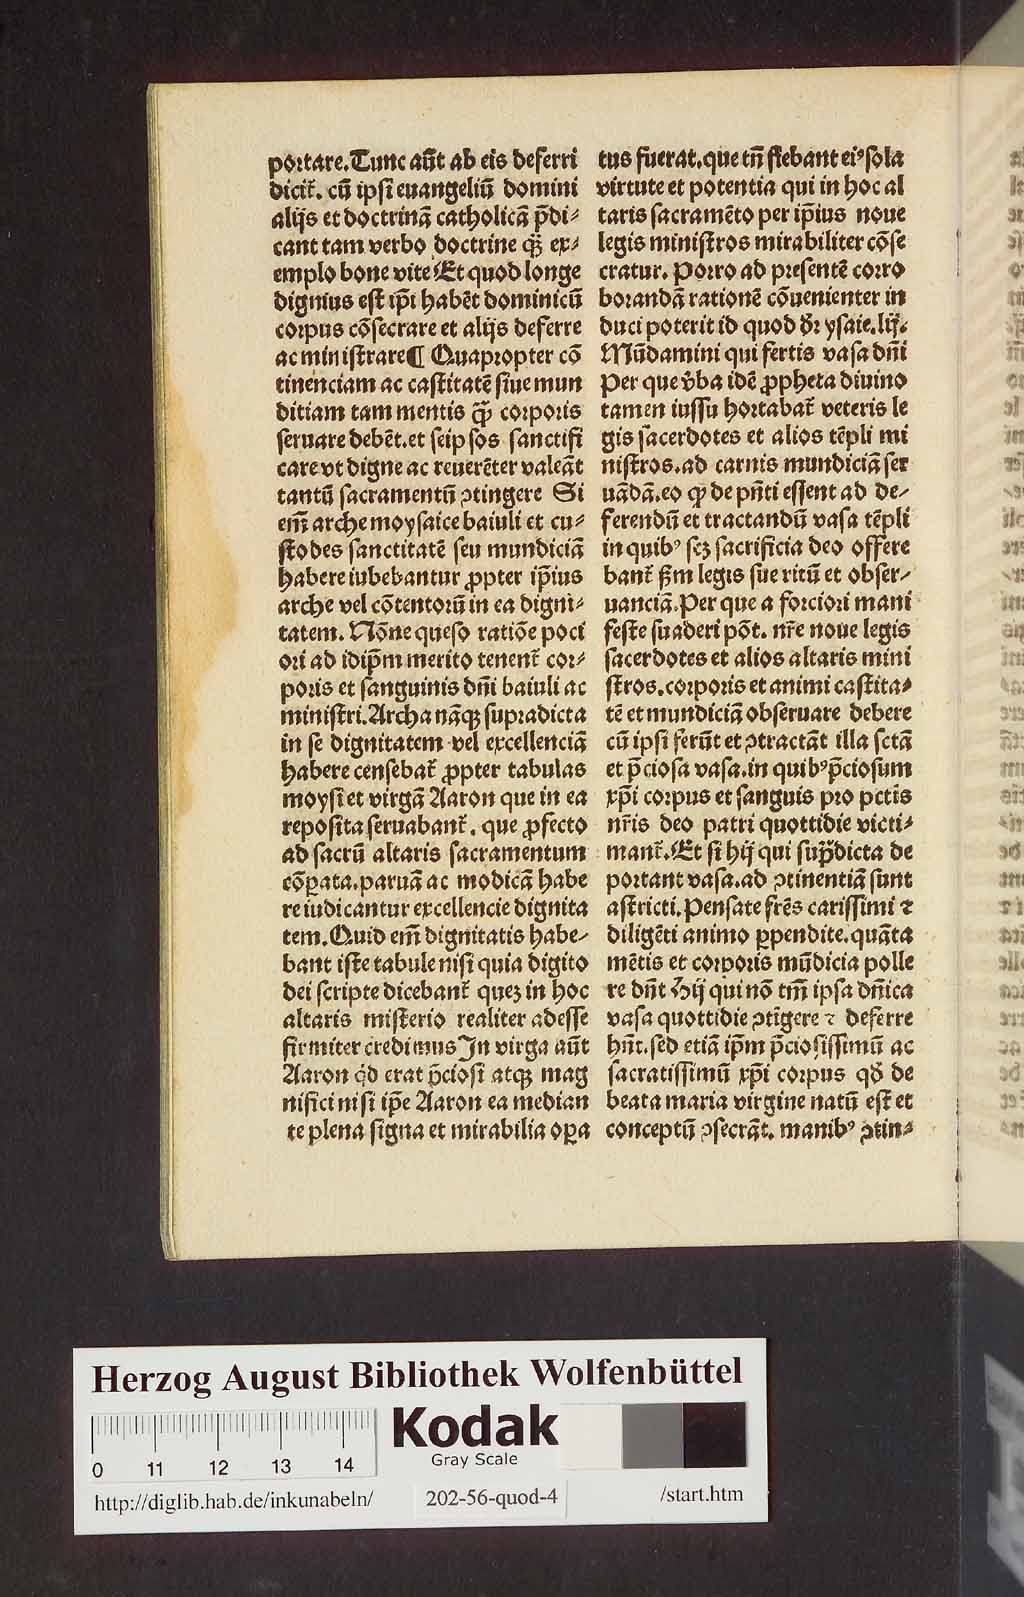 portare. Tunc aūt ab eis deferri
dicit̃. cū ipsi euangeliū domini
alijs et doctrinā catholicā p̄di⸗
cant tam verbo doctrine q̄ꝫ ex⸗
emplo bone vite Et quod longe
dignius est ip̄i habēt dominicū
corpus cōsecrare et alijs deferre
ac ministrare ¶ Quapropter cō
tinenciam ac castitatē siue mun
ditiam tam mentis q̄ꝫ corporis
seruare debēt. et seipsos sanctifi
care vt digne ac reuerēter valeāt
tantū sacramentū ꝯtingere Si
em̄ arche moysaice baiuli et cu⸗
stodes sanctitatē seu mundiciā
habere iubebantur ꝓpter ip̄ius
arche vel cōtentorū in ea digni⸗
tatem. Nōne queso ratiōe poci
ori ad idip̄m merito tenent̃ cor⸗
poris et sanguinis dn̄i baiuli ac
ministri. Archa nāqꝫ supradicta
in se dignitatem vel excellenciā
habere censebat̃ ꝓpter tabulas
moysi et virgā Aaron que in ea
reposita seruabant̃. que ꝓfecto
ad sacrū altaris sacramentum
cōꝑata. paruā ac modicā habe
re iudicantur excellencie dignita
tem. Quid em̄ dignitatis habe⸗
bant iste tabule nisi quia digito
dei scripte dicebant̃ queꝫ in hoc
altaris misterio realiter adesse
firmiter credimus In virga aūt
Aaron qd̄ erat p̄ciosi atqꝫ mag
nifici nisi ip̄e Aaron ea median
te plena signa et mirabilia oꝑa
tus fuerat. que tn̄ fiebant eiꝰ sola
virtute et potentia qui in hoc al
taris sacramēto per ip̄ius noue
legis ministros mirabiliter cōse
cratur. Porro ad presentē corro
borandā rationē cōuenienter in
duci poterit id quod dr̄ ysaie. lij.
Mūdamini qui fertis vasa dn̄i
Per que v̄ba idē ꝓpheta diuino
tamen iussu hortabat̃ veteris le
gis sacerdotes et alios tēpli mi
nistros. ad carnis mundiciā ser
uādā. eo ꝙ de pn̄ti essent ad de⸗
ferendū et tractandū vasa tēpli
in quibꝰ scꝫ sacrificia deo offere
bant̃ ẜm legis sue ritū et obser⸗
uanciā. Per que a forciori mani
feste suaderi pōt. nr̄e noue legis
sacerdotes et alios altaris mini
stros. corporis et animi castita⸗
tē et mundiciā obseruare debere
cū ipsi ferūt et ꝯtractāt illa sctā
et p̄ciosa vasa. in quibꝰ p̄ciosum
xp̄i corpus et sanguis pro pctīs
nr̄is deo patri quottidie victi⸗
mant̃. Et si hij qui sup̄dicta de
portant vasa. ad ꝯtinentiā sunt
astricti. Pensate fr̄es carissimi ⁊
diligēti animo ꝑpendite. quāta
mētis et corporis mūdicia polle
re dn̄t Hij qui nō tm̄ ipsa dn̄ica
vasa quottidie ꝯtīgere ⁊ deferre
hn̄t. sed etiā ip̄m p̄ciosissimū ac
sacratissimū xp̄i corpus qd̄ de
beata maria virgine natū est et
conceptū ꝯsecrāt. manibꝰ ꝯtin⸗
Herzog August Bibliothek Wolfenbüttel
Kodak
Gray Scale
0 11 12 13 14
http://diglib.hab.de/inkunabeln/
202-56-quod-4
/start.htm